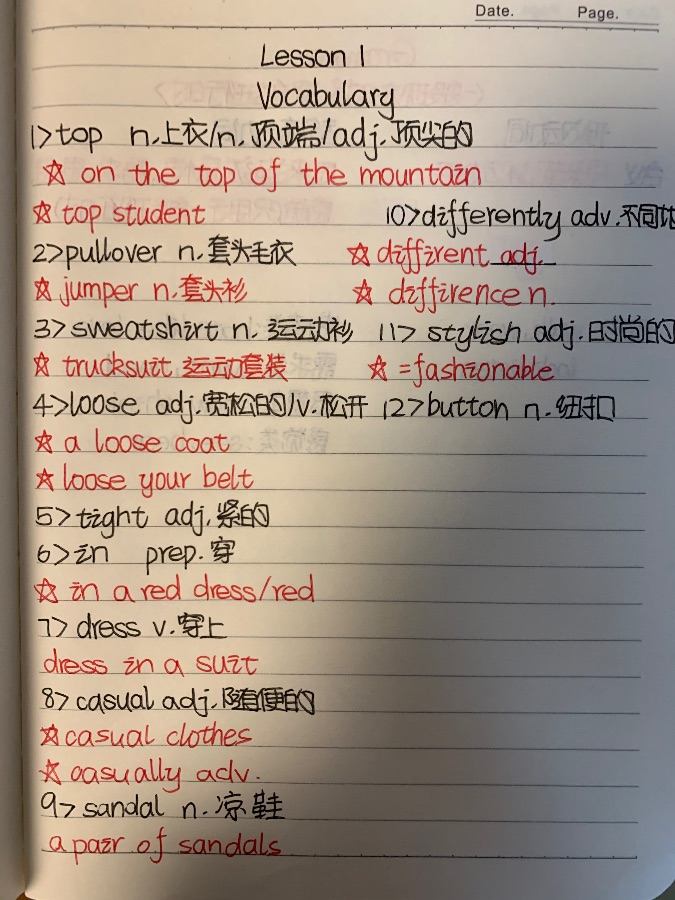 Date. Page.
Lesson 1
Vocabulary
1>top n.上衣/n.顶端/adj.顶尖的
☆ on the top of the mountain
☆ top student
2>pullover n.套头毛衣
☆ jumper n.套头衫
3>sweatshirt n.运动衫
☆ trucksuit 运动套装
4>loose adj.宽松的/v.松开
☆ a loose coat
☆ loose your belt
5>tight adj.紧的
6>in prep.穿
☆ in a red dress/red
7> dress v.穿上
dress in a suit
8> casual adj.随便的
☆ casual clothes
☆ casually adv.
9> sandal n.凉鞋
a pair of sandals
10>differently adv.不同地
☆ diffirent adj.
☆ diffirence n.
11> stylish adj.时尚的
☆ =fashionable
12>button n.纽扣